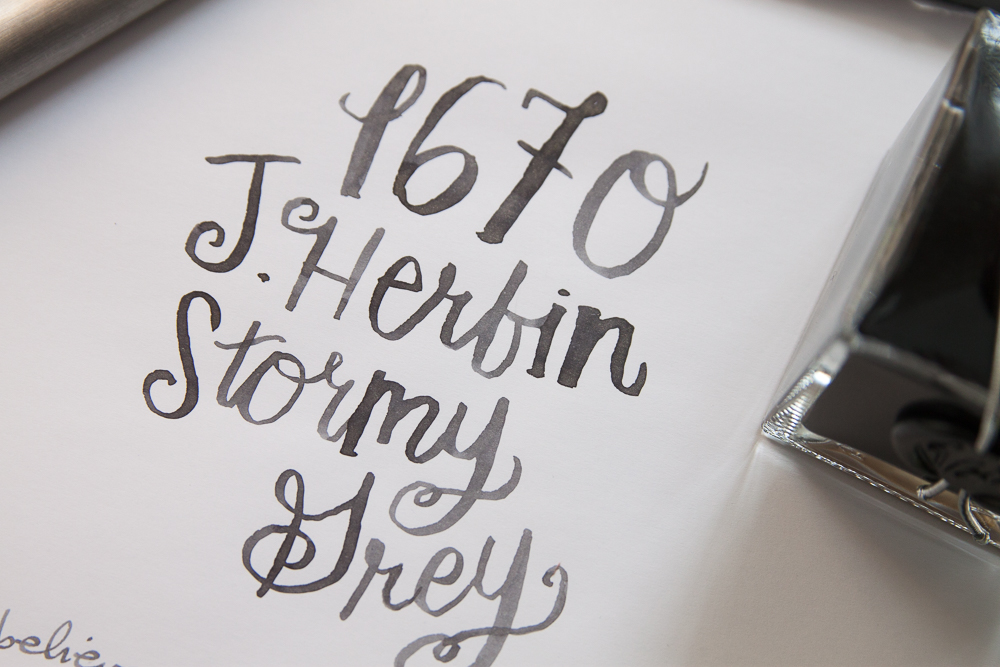 1670
J. Herbin
Stormy
Grey